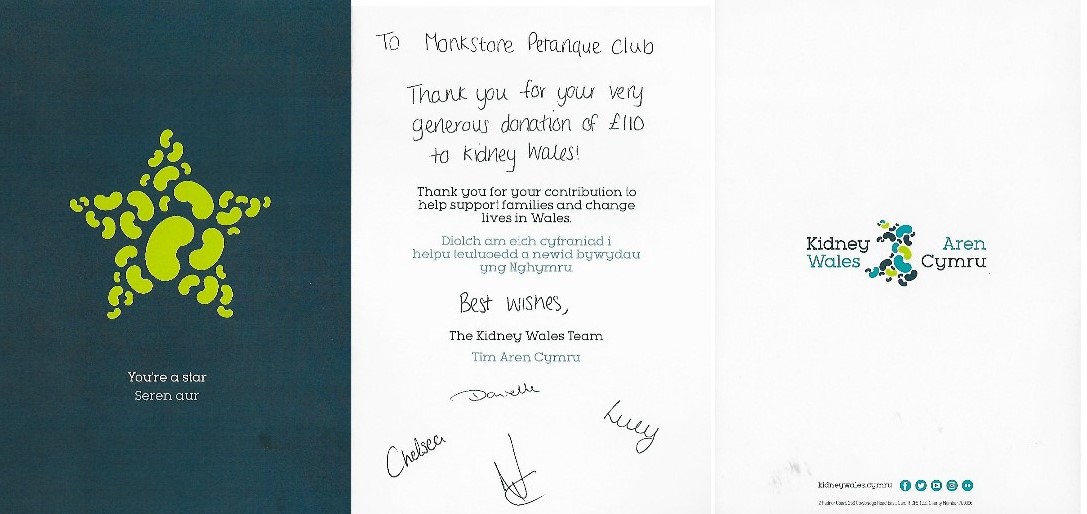 You're a star
Seren aur
To Monkstone Petanque Club
Thank you for your very
generous donation of £110
to Kidney Wales!
Thank you for your contribution to
help support families and change
lives in Wales.
Diolch am eich cyfraniad i
helpu teuluoedd a newid bywydau
yng Nghymru.
Best wishes,
The Kidney Wales Team
Tîm Aren Cymru
Danielle
Lucy
Chelsea
Kidney Wales
Aren Cymru
kidneywales.cymru